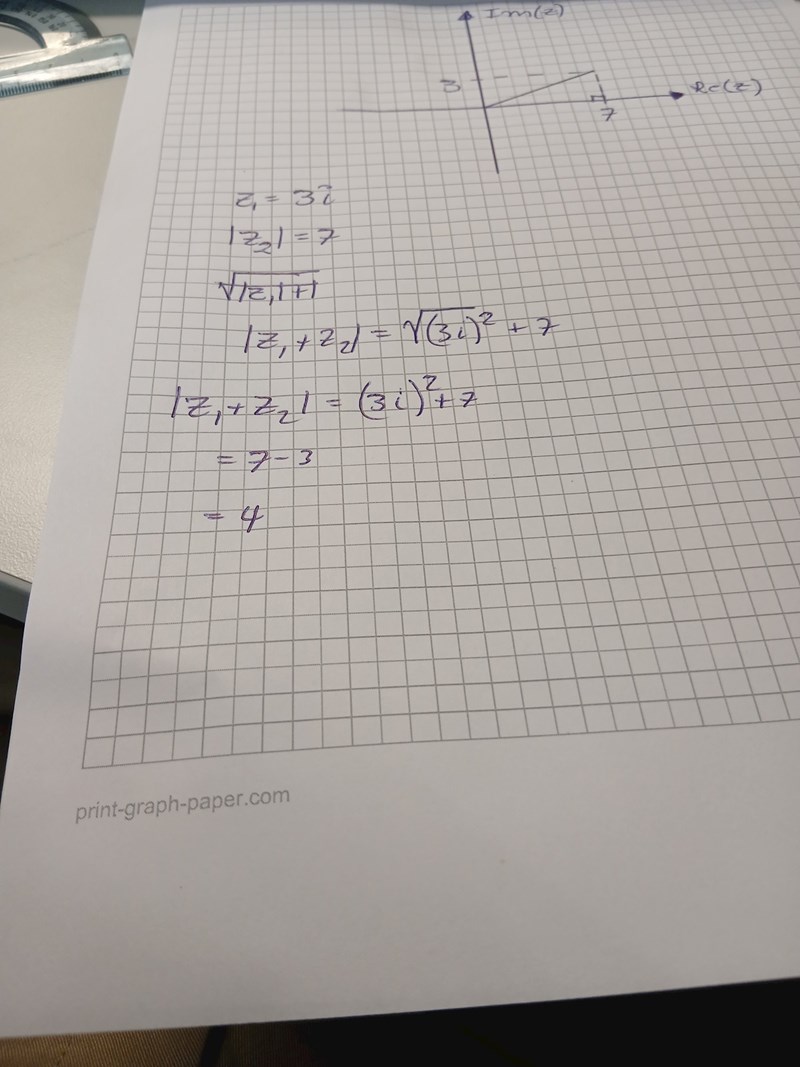 Im(z)
3
Re(z)
7
z₁ = 3i
|z₂| = 7
√|z₁|+1
|z₁+z₂| = √(3i)² + 7
|z₁+z₂| = (3i)²+7
= 7-3
= 4
print-graph-paper.com